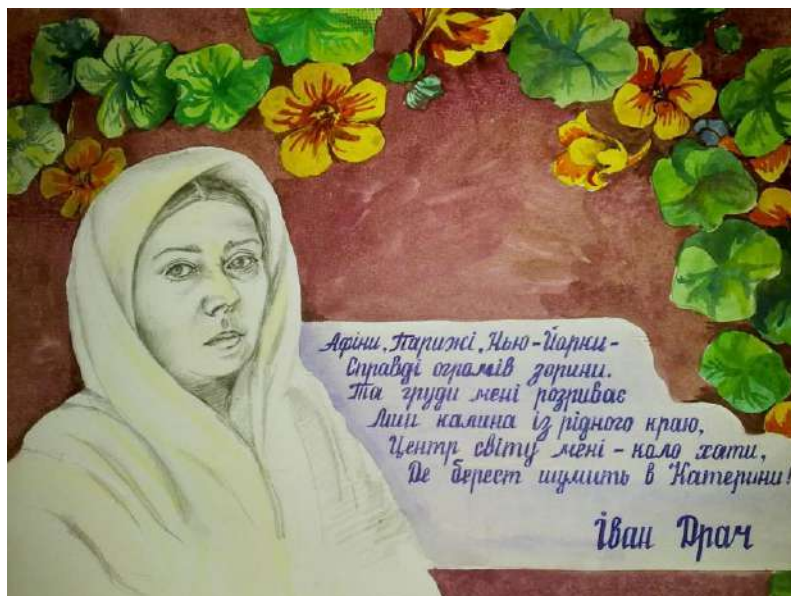 Афіни, Парижі, Нью-Йорки-
Справді огромів зорини.
Та груди мені розриває
Лиш калина із рідного краю,
Центр світу мені - коло хати,
Де берест шумить в Катерини!
Іван Драч